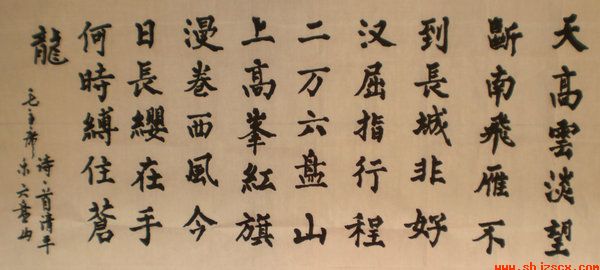 天高雲淡望
斷南飛雁不
到長城非好
汉屈指行程
二万六盘山
上高峯紅旗
漫卷西風今
日長纓在手
何時縛住蒼
龍
诗一首清平
乐六盘山
毛主席
www.shjzscx.com